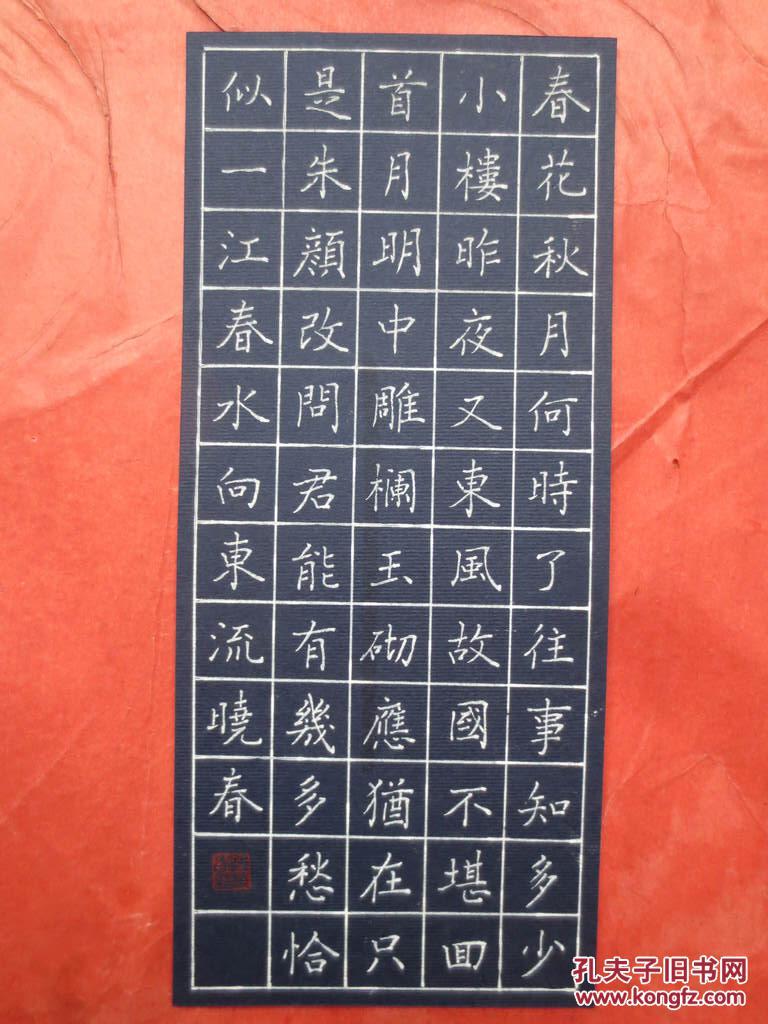 春花秋月何時了往事知多少
小樓昨夜又東風故國不堪回
首月明中雕欄玉砌應猶在只
是朱顏改問君能有幾多愁恰
似一江春水向東流曉春
孔夫子旧书网
www.kongfz.com